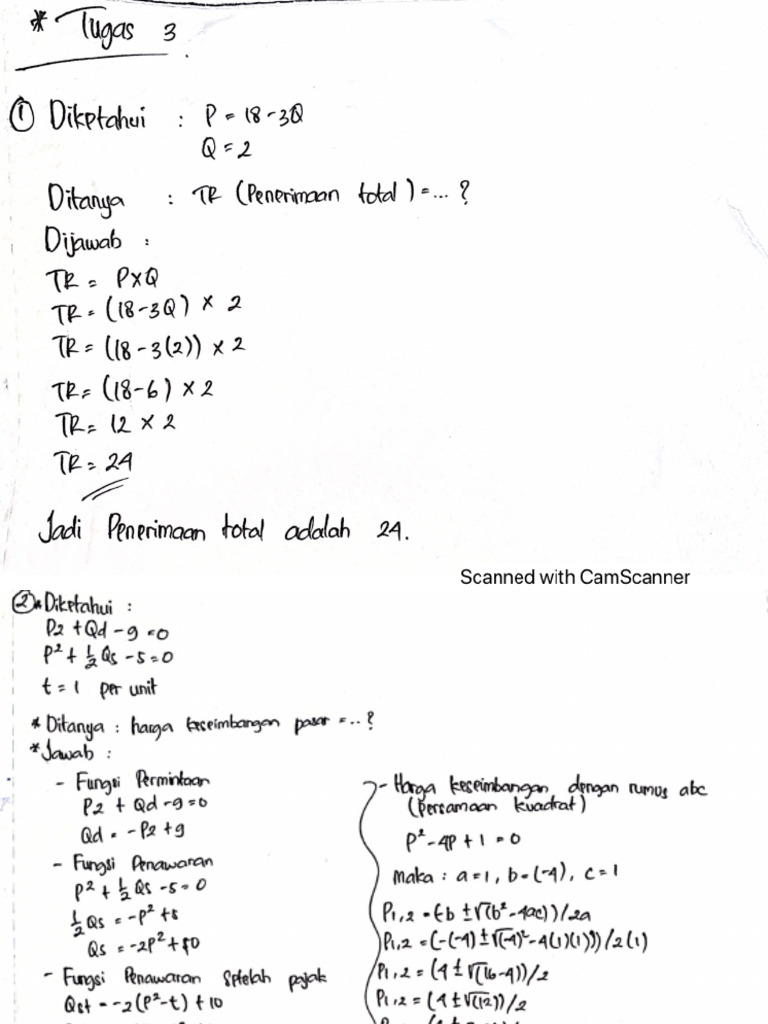 * Tugas 3
① Diketahui : P = 18-3Q
Q = 2
Ditanya : TR (Penerimaan total) = ... ?
Dijawab :
TR = P×Q
TR = (18-3Q) × 2
TR = (18-3(2)) × 2
TR = (18-6) × 2
TR = 12 × 2
TR = 24
Jadi Penerimaan total adalah 24.
Scanned with CamScanner
② * Diketahui :
P2 + Qd - 9 = 0
P² + ½ Qs - 5 = 0
t = 1 per unit
* Ditanya : harga keseimbangan pasar = ..?
* Jawab :
- Fungsi Permintaan
P2 + Qd - 9 = 0
Qd = -P2 + 9
- Fungsi Penawaran
P² + ½ Qs - 5 = 0
½ Qs = -P² + 5
Qs = -2P² + 10
- Fungsi Penawaran Setelah pajak
Qst = -2(P²-t) + 10
- Harga keseimbangan dengan rumus abc
(Persamaan kuadrat)
P² - 4P + 1 = 0
Maka : a = 1, b = (-4), c = 1
P1,2 = (-b ± √(b² - 4ac))/2a
P1,2 = (-(-4) ± √(-4)² - 4(1)(1)))/2(1)
P1,2 = (4 ± √(16-4))/2
P1,2 = (4 ± √(12))/2